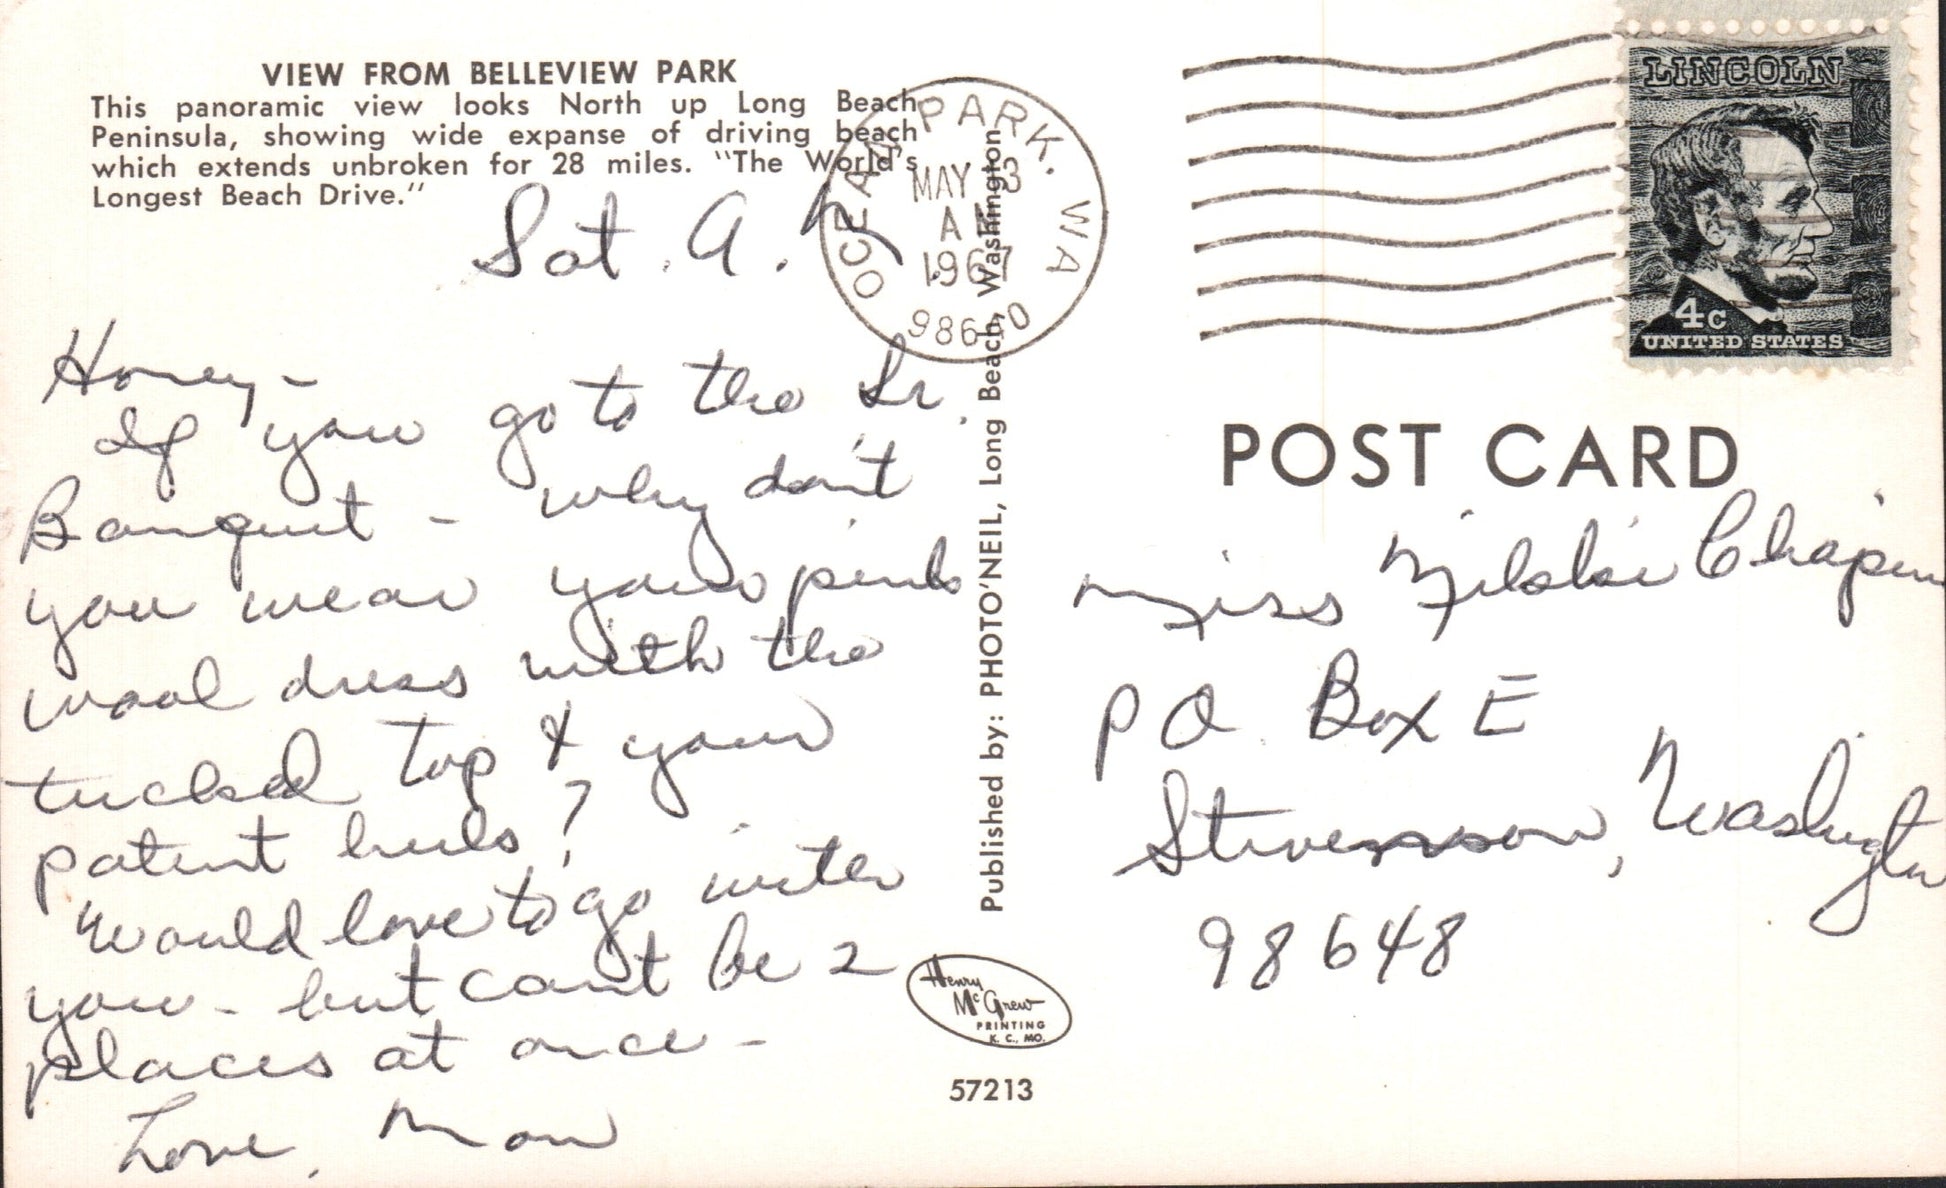 VIEW FROM BELLEVIEW PARK
This panoramic view looks North up Long Beach
Peninsula, showing wide expanse of driving beach
which extends unbroken for 28 miles. "The World's
Longest Beach Drive."
Sat. A.M.
Honey -
If you go to the Sr.
Banquet - why don't
you wear your pink
wool dress with the
tucked top & your
patent heels?
Would love to go with
you - but can't be 2
places at once -
Love, Mom
OCEAN PARK, WA
MAY 13
AM
1967
98640
Published by: PHOTO'NEIL, Long Beach, Washington
Henry
McGrew
PRINTING
K. C., MO.
57213
LINCOLN
4c
UNITED STATES
POST CARD
Miss Chapin
PO Box E
Stevenson, Washington
98648